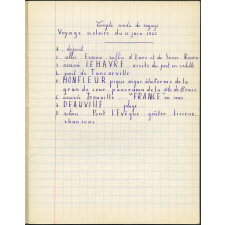 Compte rendu de voyage
Voyage scolaire du 11 juin 1963
1. départ
2. aller Evreux vallée d'Eure et de Seine Rouen
3. arrivée LE HAVRE visite du port en vedette
4. pont de Tancarville
5. HONFLEUR pique nique plateforme de la
grande cour panorama de la côte de Grace
6. arrivée Trouville "FRANCE" en mer
7. DEAUVILLE plage
8. retour Pont l'Evêque goûter Lisieux
chansons